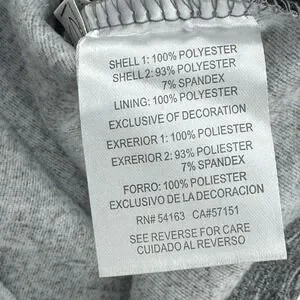 SHELL 1: 100% POLYESTER
SHELL 2: 93% POLYESTER
7% SPANDEX
LINING: 100% POLYESTER
EXCLUSIVE OF DECORATION
EXRERIOR 1: 100% POLIESTER
EXRERIOR 2: 93% POLIESTER
7% SPANDEX
FORRO: 100% POLIESTER
EXCLUSIVO DE LA DECORACION
RN# 54163 CA#57151
SEE REVERSE FOR CARE
CUIDADO AL REVERSO